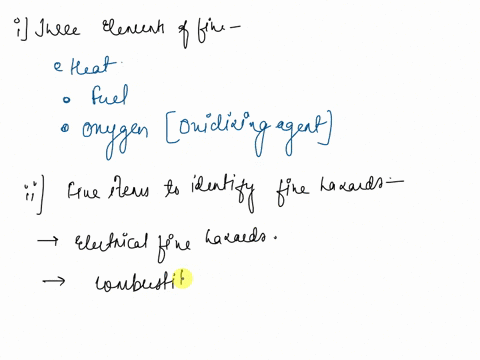 i] Three elements of fire—
• Heat.
• fuel
• oxygen [oxidizing agent]
ii] Five items to identify fire hazards—
→ Electrical fire hazards.
→ combusti